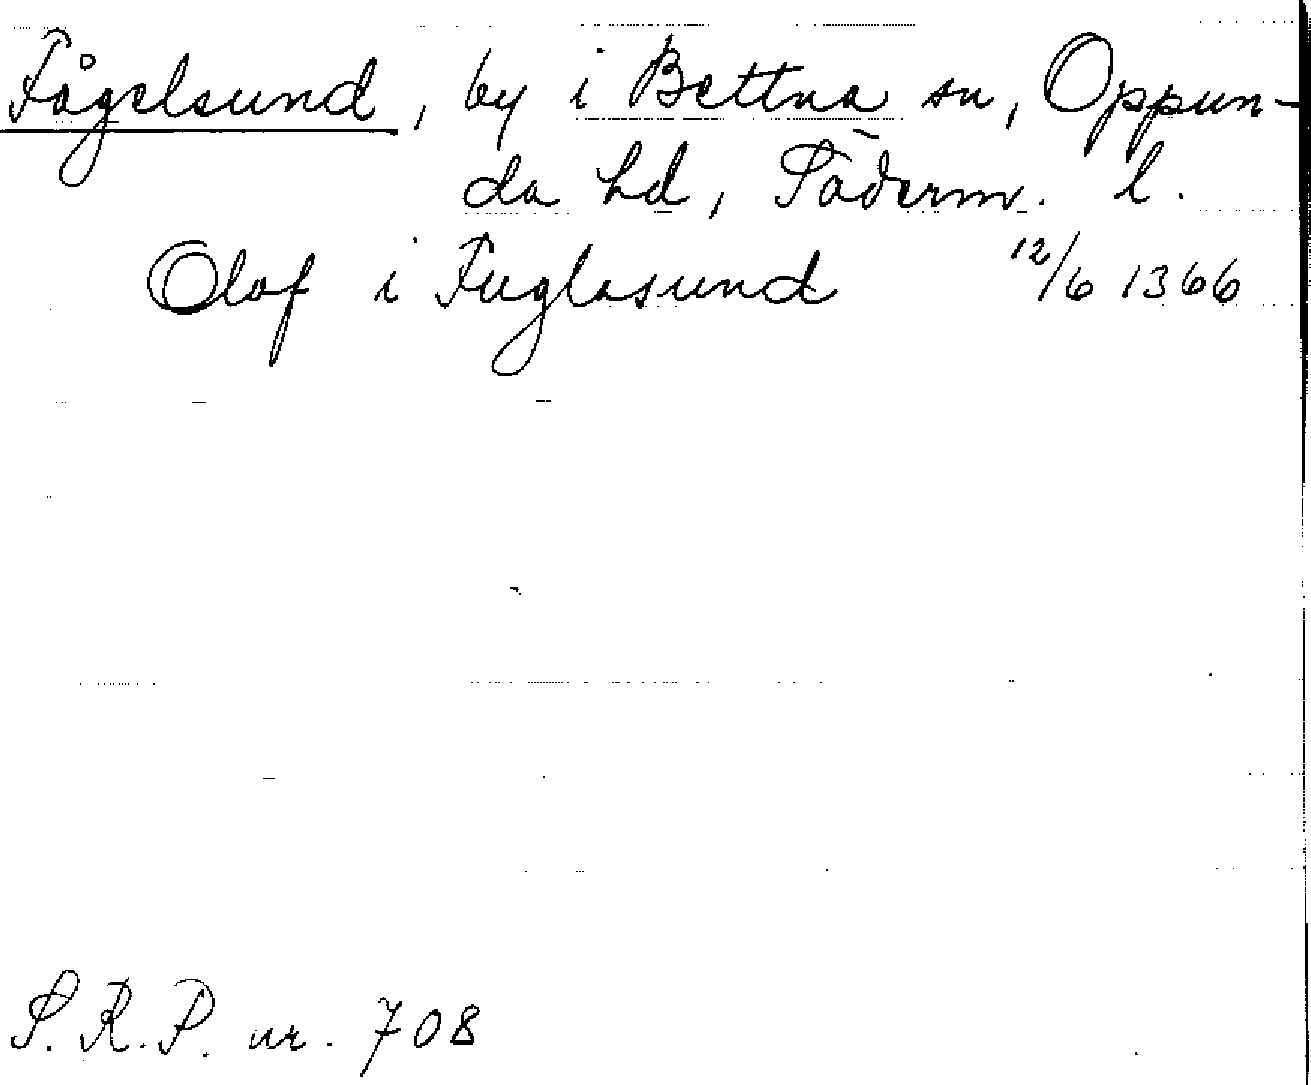 Fågelsund, by i Bettna sn, Oppun-
da hd, Söderm. l.
Olof i Fuglasund 12/6 1366
S.R.P. nr. 708